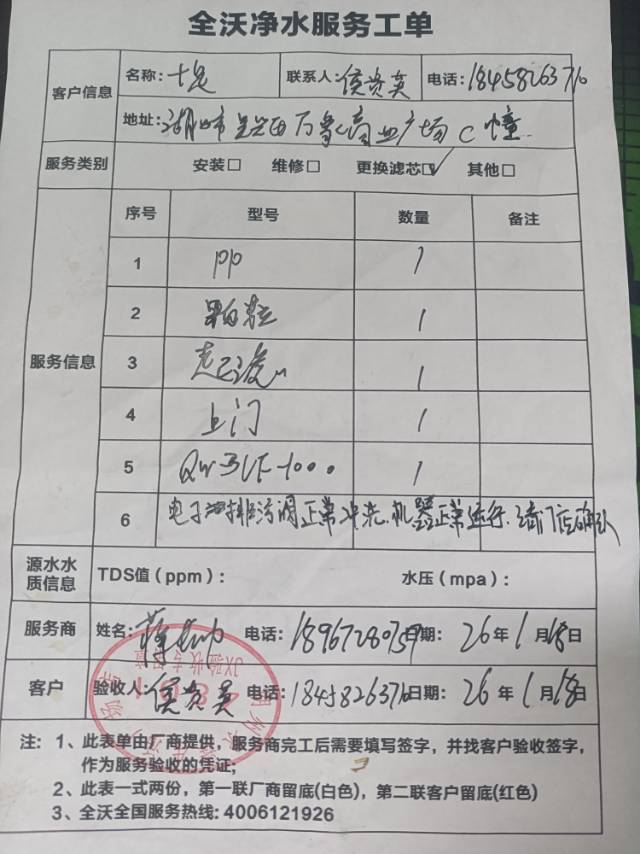 全沃净水服务工单
客户信息
名称：
联系人：侯贵英
电话：18458263710
地址：湖州市吴兴区万象商业广场C幢
服务类别 安装□ 维修□ 更换滤芯☑ 其他□
服务信息
序号 型号 数量 备注
1 PP 1
2 颗粒 1
3 超滤 1
4 上门 1
5 1
6 电子 排污阀正常冲洗.机器正常运行.请门店确认
源水水质信息 TDS值（ppm）： 水压（mpa）：
服务商 姓名： 电话：18967280759 日期：26年1月18日
客户 验收人：侯贵英 电话：18458263710 日期：26年1月18日
JX验收专用章
注：1、此表单由厂商提供，服务商完工后需要填写签字，并找客户验收签字，
作为服务验收的凭证；
2、此表一式两份，第一联厂商留底(白色)，第二联客户留底(红色)
3、全沃全国服务热线: 4006121926